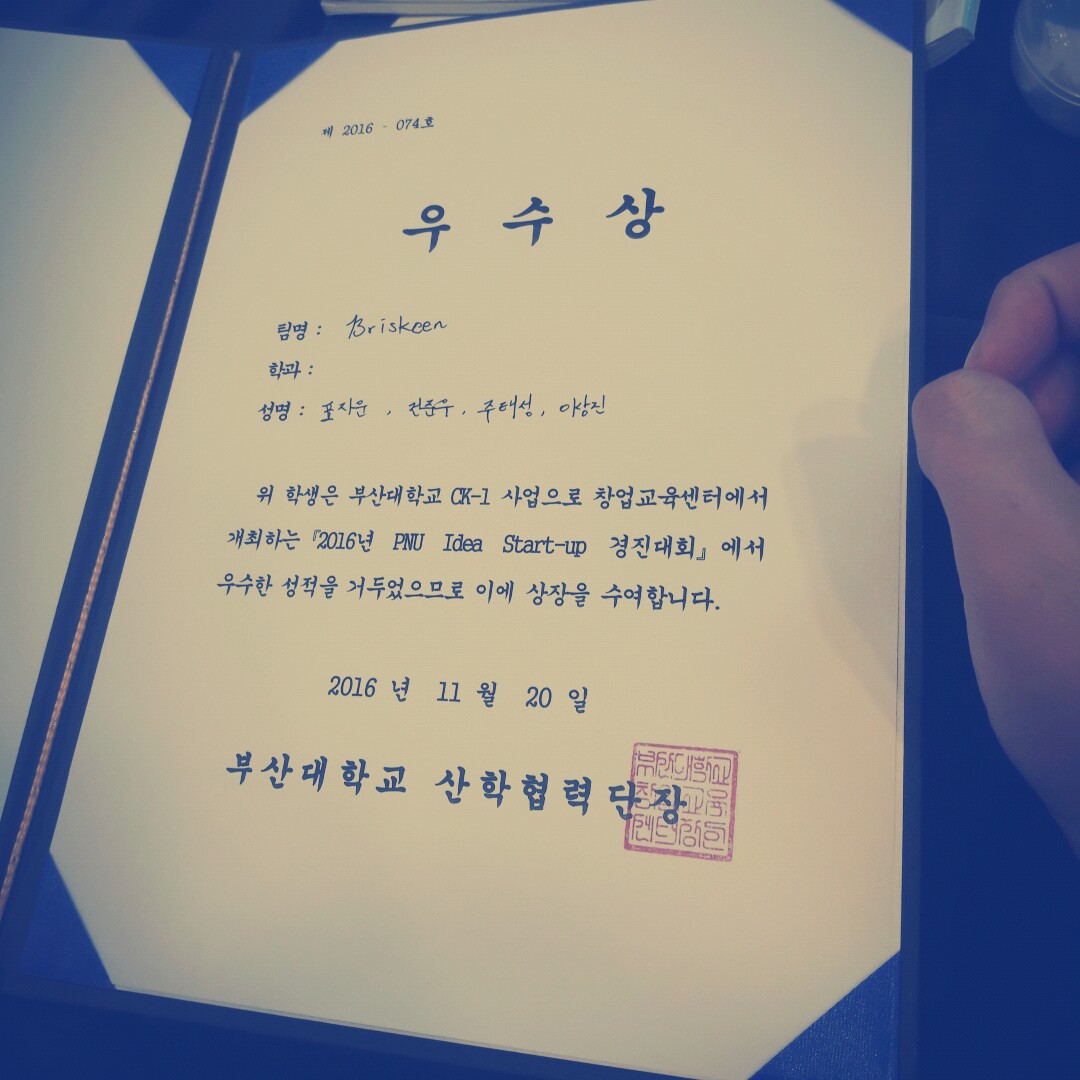 제 2016 - 074호
우 수 상
팀명 : Briskeen
학과 :
성명 : 표지운 , 전준우 , 주태성 , 이상진
위 학생은 부산대학교 CK-1 사업으로 창업교육센터에서
개최하는 『2016년 PNU Idea Start-up 경진대회』에서
우수한 성적을 거두었으므로 이에 상장을 수여합니다.
2016 년 11 월 20 일
부산대학교 산학협력단장